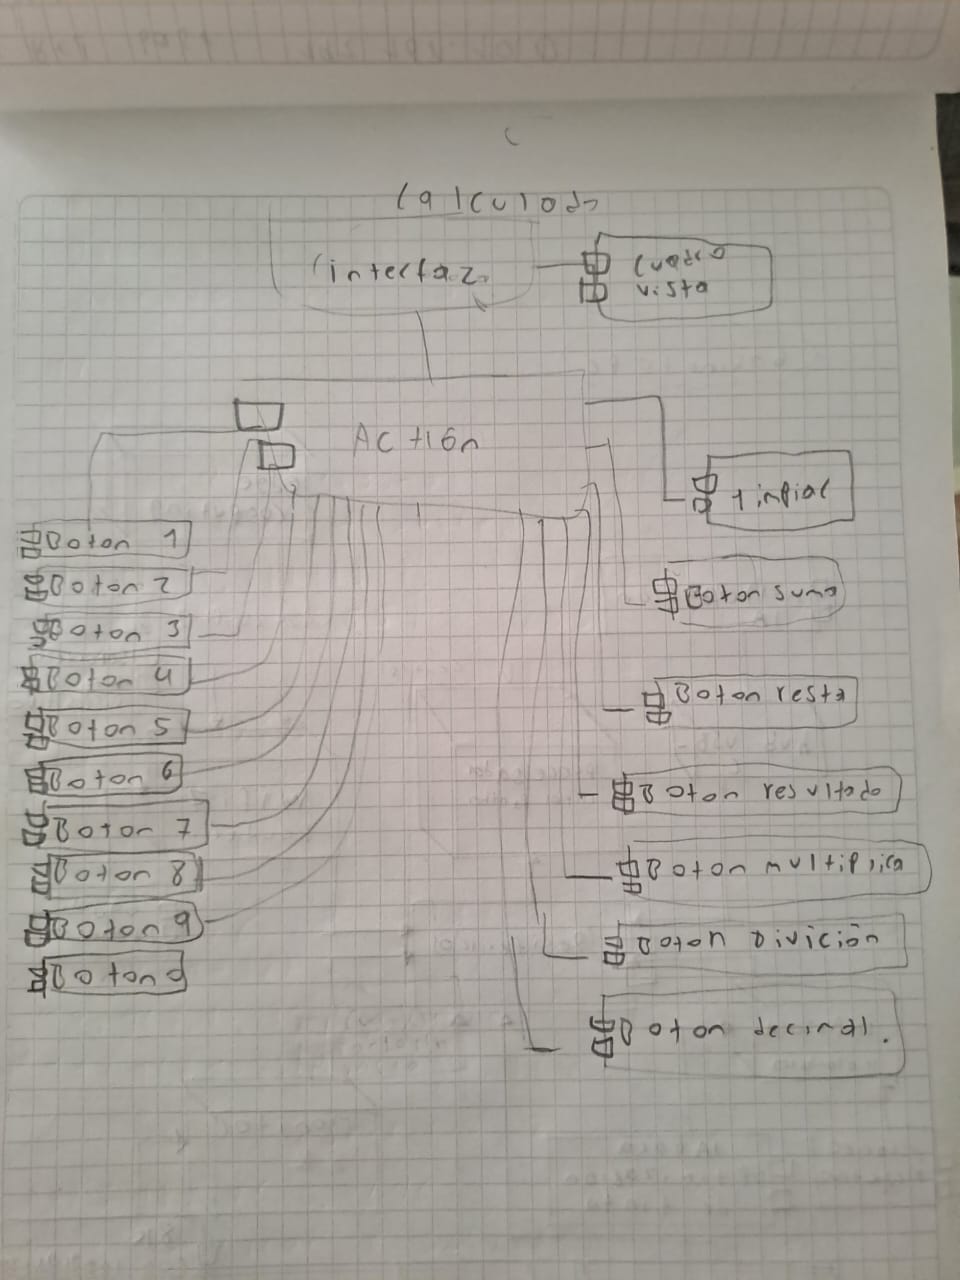 Calculoda
interfaz
Cuadro
vista
Action
Limpiar
Boton 1
Boton 2
Boton 3
Boton 4
Boton 5
Boton 6
Boton 7
Boton 8
Boton 9
Boton 0
Boton suma
Boton resta
Boton resultado
Boton multiplica
Boton Divición
Boton decimal.